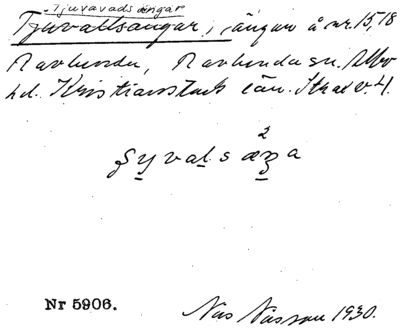 Tjuvavadsängar
Tjuvallsängar, ängar å nr. 15, 18
Ravlunda, Ravlunda sn. Albo
hd. Kristianstads län.
ʂyvalsæŋa
2
Nr 5906.
Nils Nilsson 1930.